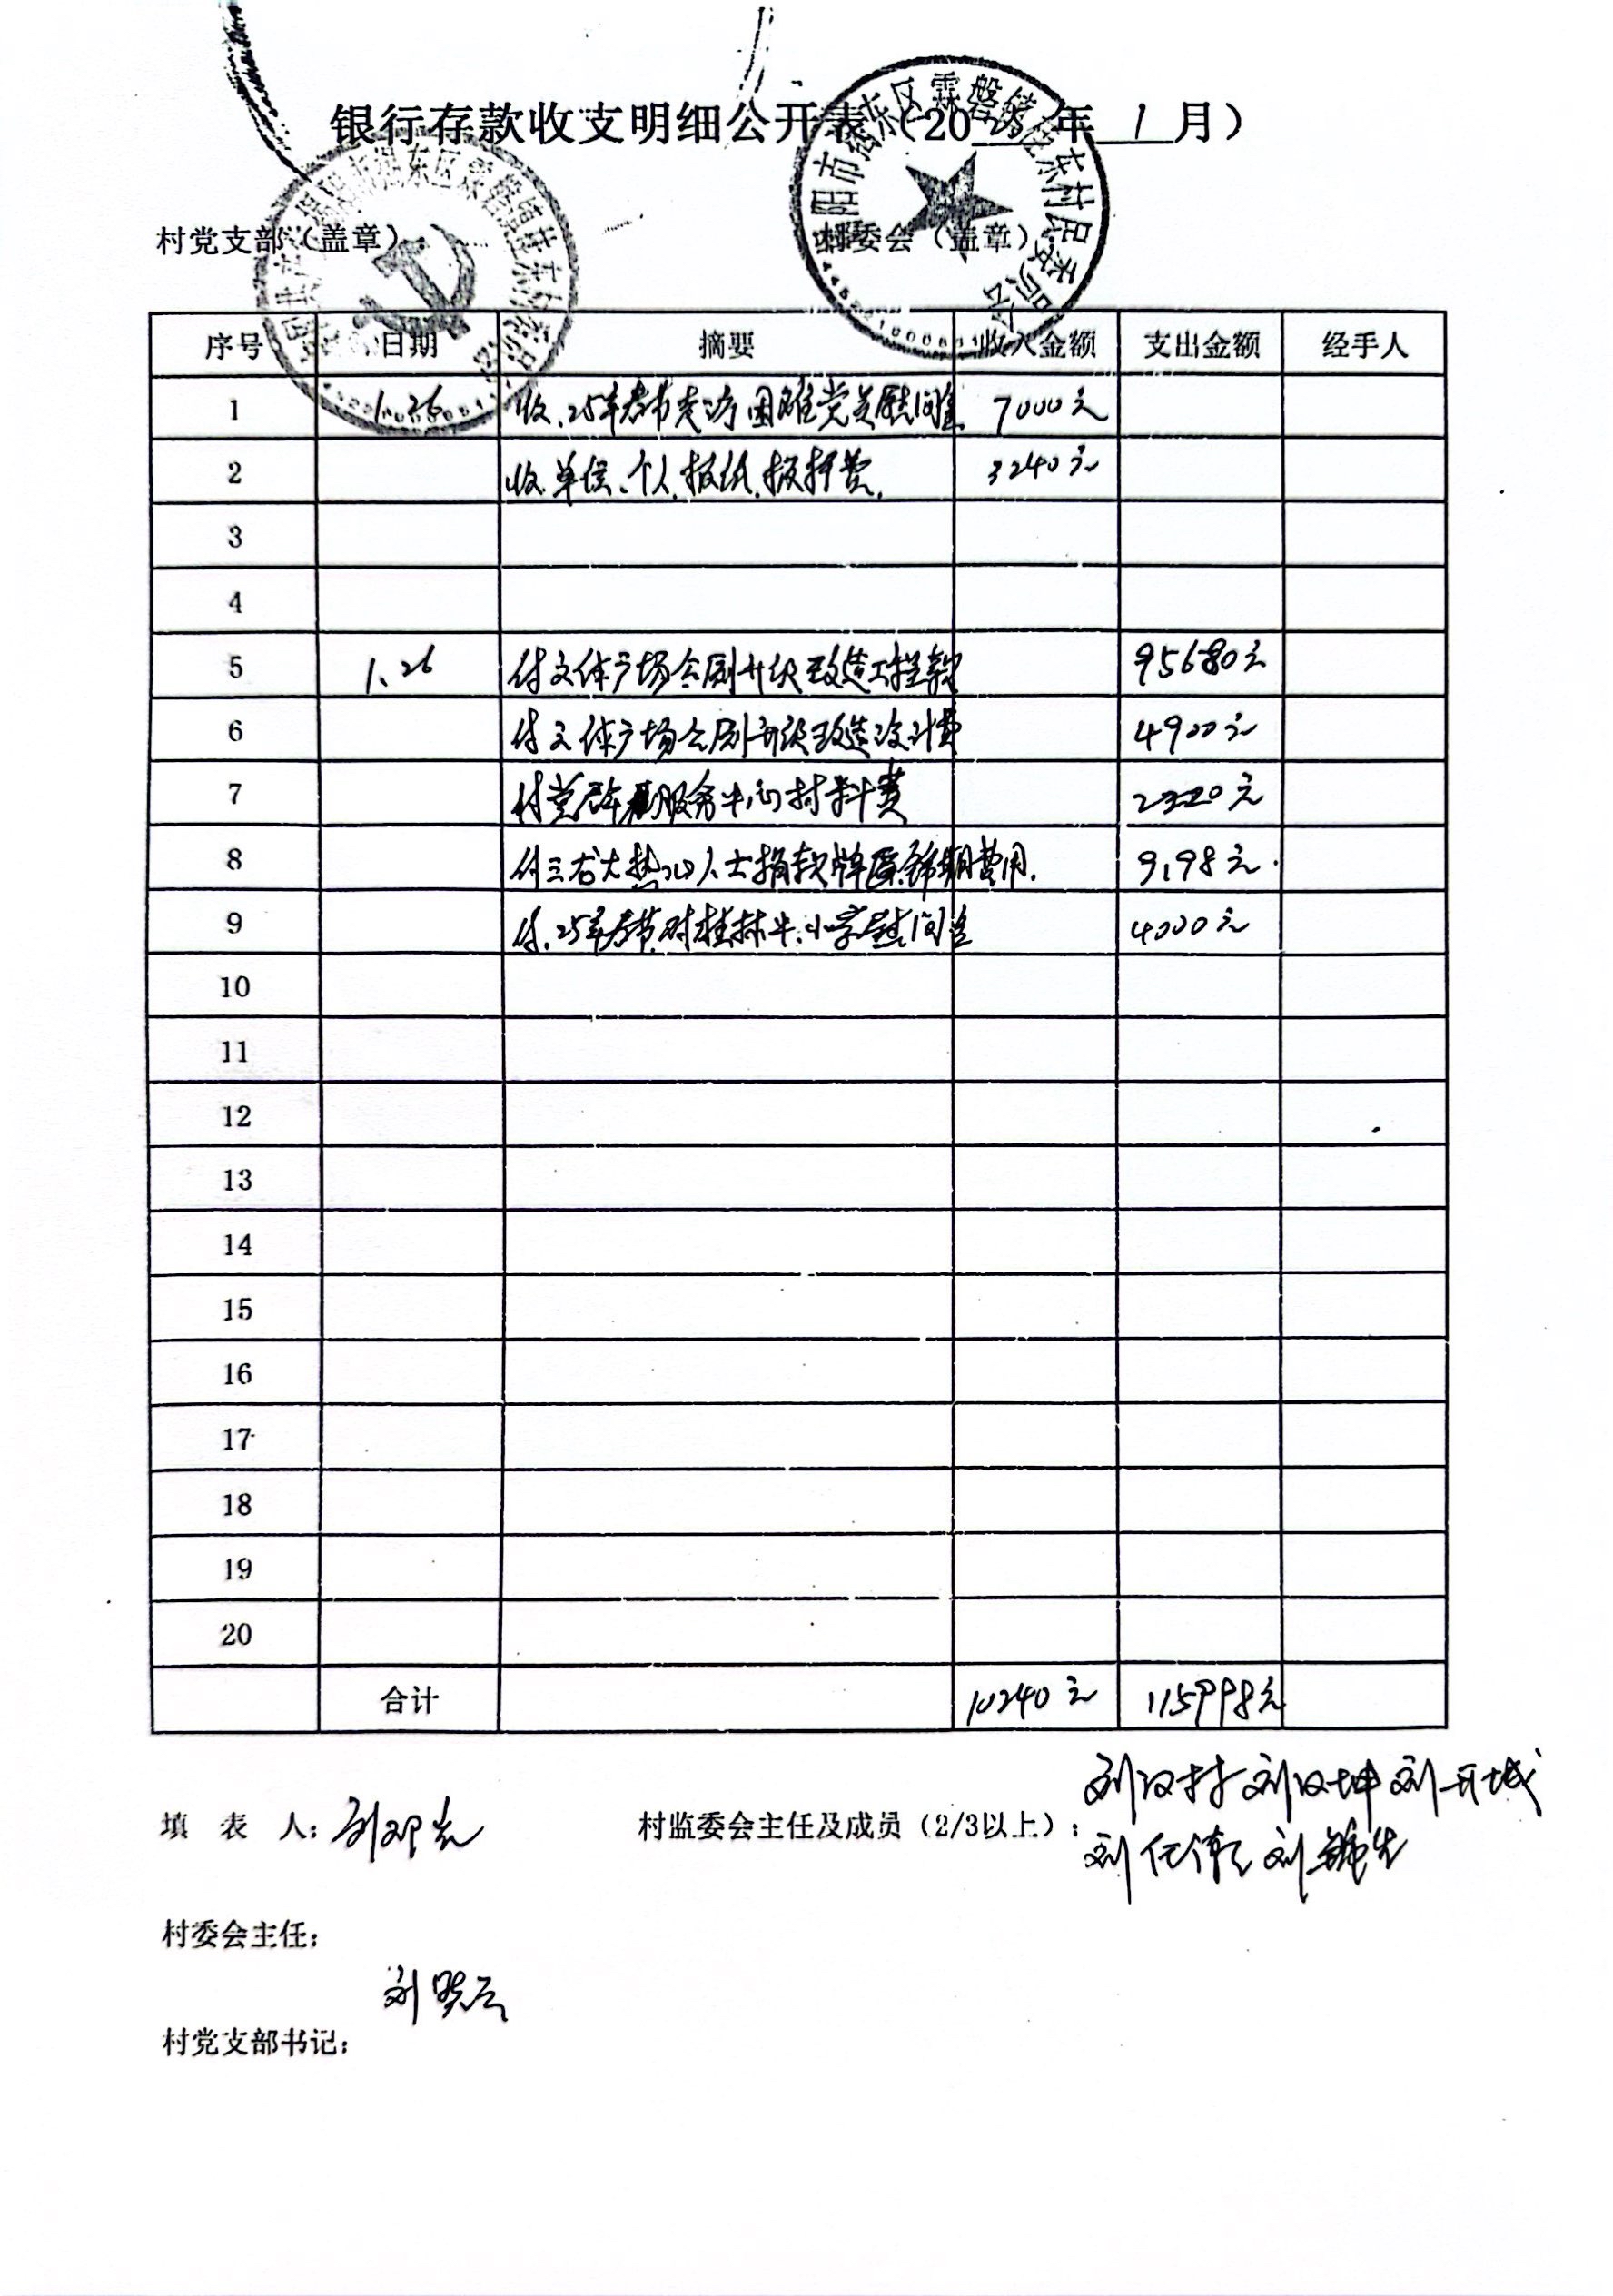 银行存款收支明细公开表（2025年1月）
村党支部（盖章）： 村委会（盖章）
序号 日期 摘要 收入金额 支出金额 经手人
1 1.26 收.25年春节走访困难党员慰问金 7000元
2 收.单位、个人.报纸.报刊费. 3240元
3
4
5 1.26 付文体广场公厕升级改造工程款 95680元
6 付文体广场公厕升级改造设计费 4900元
7 付党群服务中心材料费 2320元
8 付三名大热心人士捐款牌匾锦旗费用. 9198元.
9 付.25年春节对桂林中.小学慰问金 4000元
10
11
12
13
14
15
16
17
18
19
20
合计 10240元 115998元
填 表 人： 刘 村监委会主任及成员（2/3以上）： 刘汉 刘汉坤 刘开城
刘任 刘
村委会主任：
刘
村党支部书记：